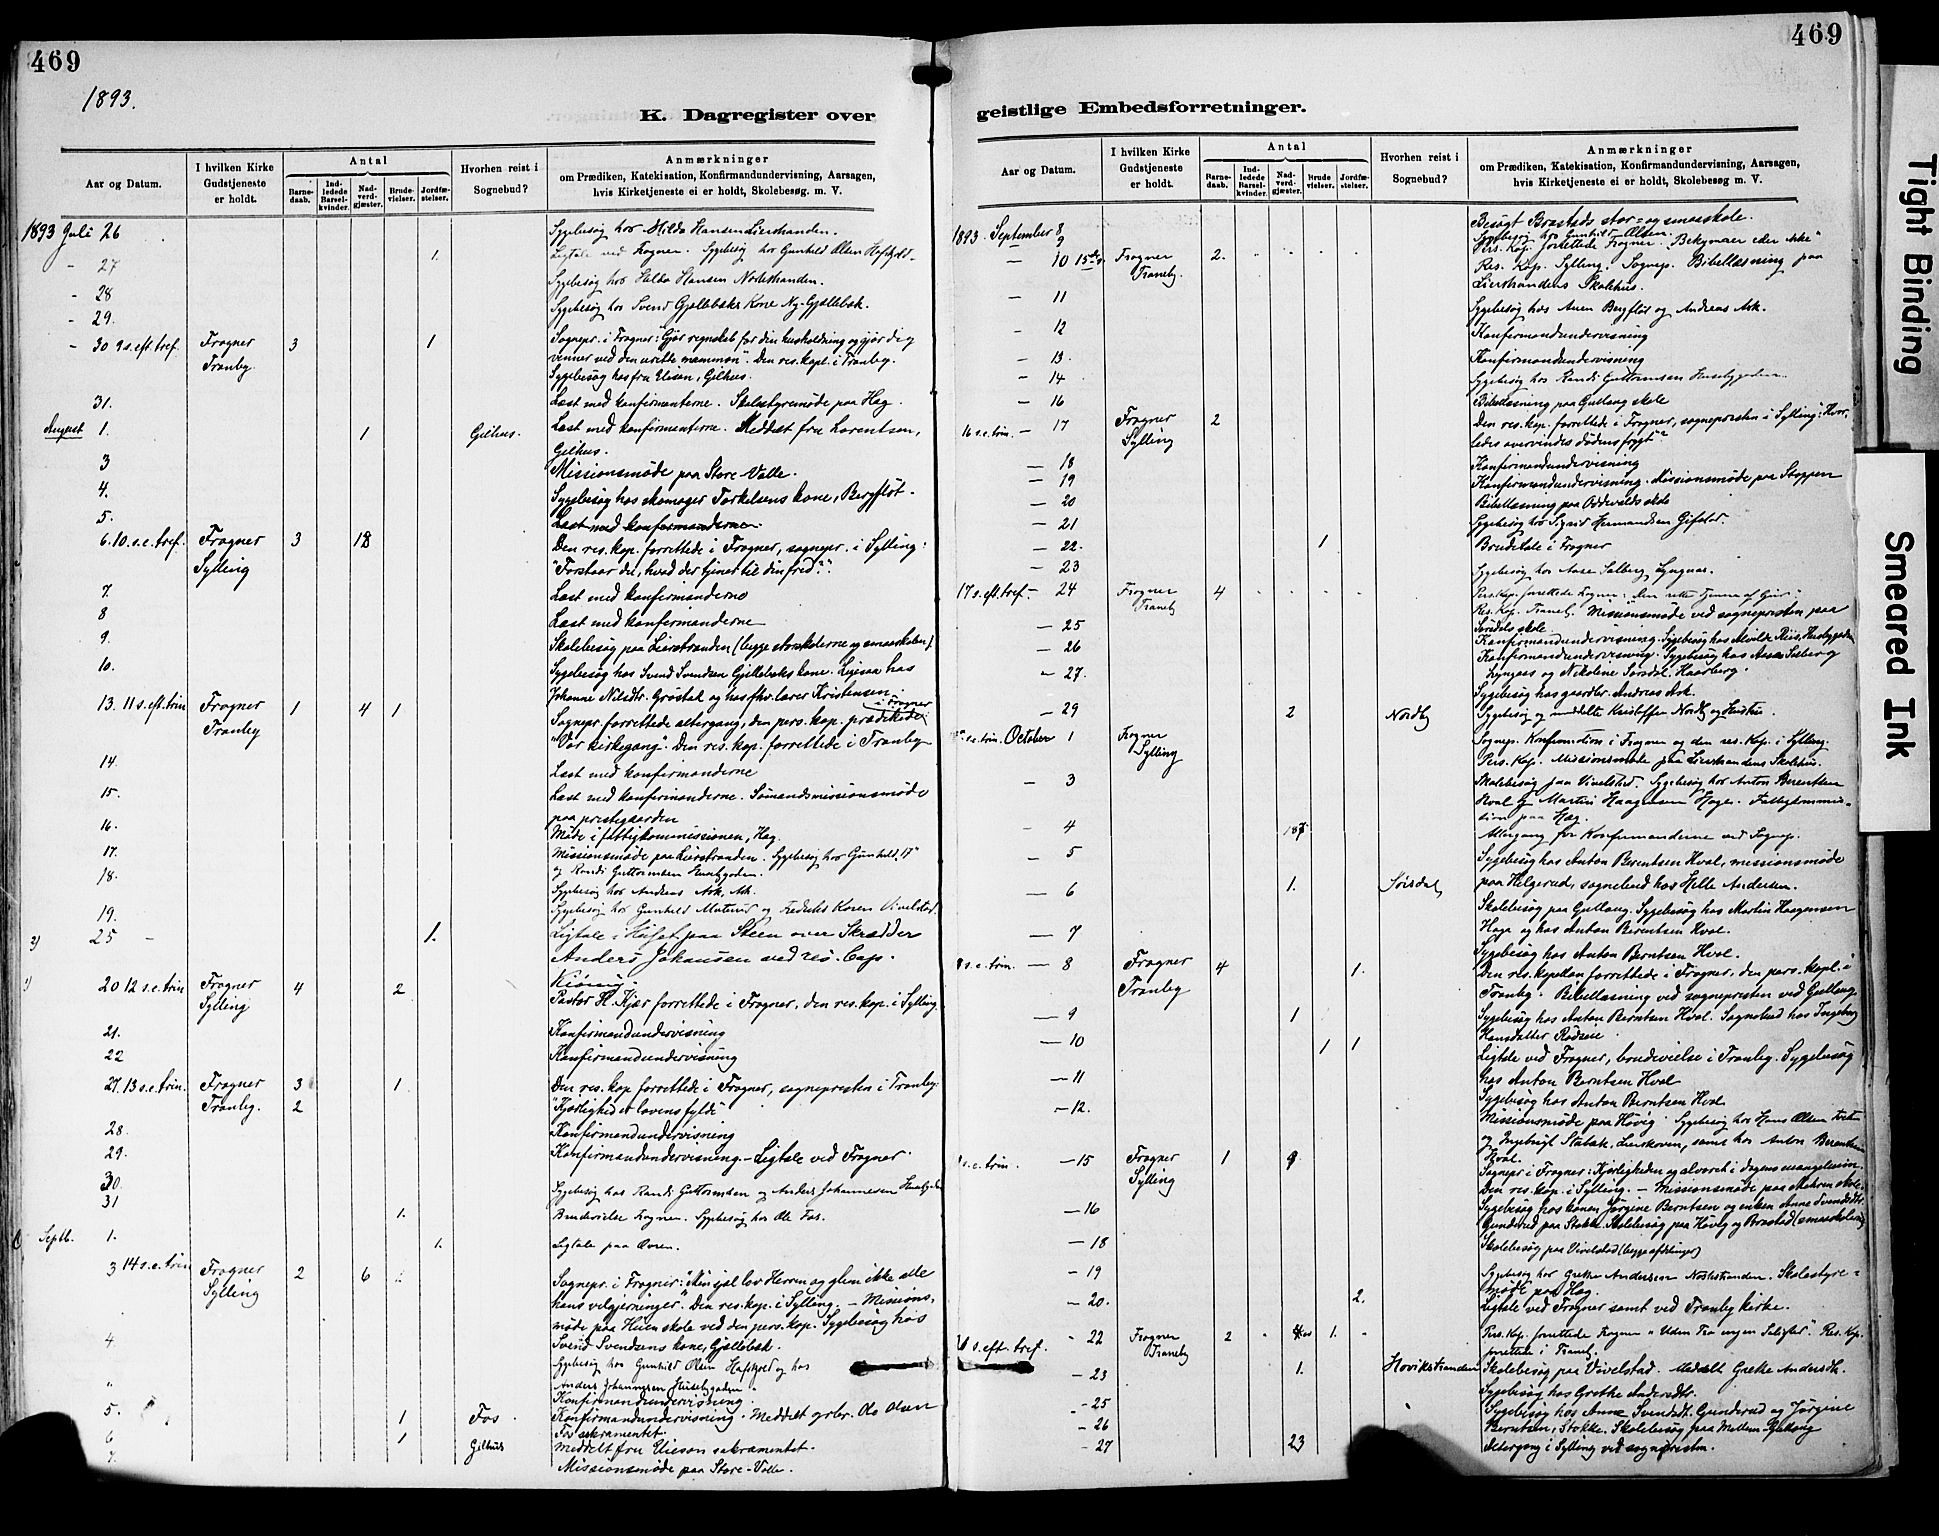 469
1893.
K. Dagregister over
Aar og Datum.
I hvilken Kirke Gudstjeneste er holdt.
Antal
Barne-daab.
Ind-ledede Barsel-kvinder.
Nad-verd-gjæster.
Brude-vielser.
Jordfæ-stelser.
Hvorhen reist i Sognebud?
Anmærkninger
om Prædiken, Katekisation, Konfirmandundervisning, Aarsagen,
hvis Kirketjeneste ei er holdt, Skolebesøg m. V.
1893 Juli 26 Sygebesøg hos Hilda Hansen Lierstranden.
- 27 1. Ligtale ved Frogner. Sygebesøg hos Gunhild Olsen
- 28 Sygebesøg hos Hilda Hansen
- 29. Sygebesøg hos Svend Gjellebæks Kone Ny-Gjellebæk.
- 30 9 s. eft. tref. Frogner 3 1 Sognepr. i Frogner: "Gjør regnskab for din husholdning og gjør dig
Tranby. venner ved den urette mammon". Den res. kapl. i Tranby.
Sygebesøg hos fru Elison, Gilhus.
31. Læst med konfirmanterne. Skolestyremøde paa Hag.
August 1. 1 Gilhus. Læst med konfirmanterne. Meddelt fru Lorentsen,
Gilhus.
3 Missionsmøde paa Store-Valle.
4. Sygebesøg hos skomager Torkelsens kone, Bergfløt.
5. Læst med konfirmanderne.
6. 10. s. e. tref. Frogner 3 18 Den res. kap. forrettede i Frogner, sognepr. i Sylling:
Sylling "Forstaar du, hvad der tjener til din fred?".
7. Læst med konfirmanderne
8 Læst med konfirmanderne
9. Skolebesøg paa Lierstranden (begge storskolerne og smaaskolen).
10. Sygebesøg hos Svend Svendsen Gjellebæks kone. Ligesaa hos
Johanne Nilsdtr. Grøstad og hos fhv. lærer Kristensen
13. 11 s. eft. trin Frogner 1 4 1 Sognepr. forrettede altergang, den pers. kap. prædikede i Frogner
Tranby "Vor kirkegang". Den res. kap. forrettede i Tranby
14. Læst med konfirmanderne
15. Læst med konfirmanderne. Sømandsmissionsmøde
paa prestegaarden
16. Møde i fattigkommissionen, Hag.
17. Missionsmøde paa Lierstranden. Sygebesøg hos Gunhild
18. og Randi Guttormsen
Sygebesøg hos Andreas Ask, Ask.
19. Sygebesøg hos Gunhild og Fredriks Karen Vivelstad.
2) 25 - 1. Ligtale i Huset paa Steen over Skrædder
Anders Johansen ved res. Cap.
1) 20 12 s. e. trin Frogner 4 2 Pastor H. Kjær forrettede i Frogner, den res. kap. i Sylling.
Sylling
21. Konfirmandundervisning
22 Konfirmandundervisning
27. 13 s. e. trin. Frogner 3 1. Den res. kap forrettede i Frogner, sognepresten i Tranby:
Tranby. 2 "Kjærlighed er lovens fylde"
28. Konfirmandundervisning
29. Konfirmandundervisning. - Ligtale ved Frogner.
30. Sygebesøg hos Randi Guttormsen og Anders Johannesen
31 1. Brudevielse Frogner. Sygebesøg hos Ole Fos.
Septb. 1. 1. Ligtale paa Ovren.
3 14 s. e. trin Frogner 2 6 Sognepr. i Frogner: "Min sjæl lov Herren og glem ikke alle
Sylling hans velgjerninger." Den res. kap. i Sylling. - Missions-
møde paa Heien skole ved den pers. kap. Sygebesøg hos
4 Svend Svendsens kone, Gjellebæk.
Sygebesøg hos Gunhild Olsen og hos
" Anders Johannesen
Konfirmandundervisning.
5. 1 Fos. Konfirmandundervisning. Meddelt grbr. Ole Olsen
Fos sakramentet.
6 1 Gilhus Meddelt fru Elieson sakramentet.
7. Missionsmøde paa Store-Valle.
469
geistlige Embedsforretninger.
Aar og Datum.
I hvilken Kirke Gudstjeneste er holdt.
Antal
Barne-daab.
Ind-ledede Barsel-kvinder.
Nad-verd-gjæster.
Brude-vielser.
Jordfæ-stelser.
Hvorhen reist i Sognebud?
Anmærkninger
om Prædiken, Katekisation, Konfirmandundervisning, Aarsagen,
hvis Kirketjeneste ei er holdt, Skolebesøg m. V.
1893 September 8 Besøgt Brastads stor- og smaaskole.
9 Sygebesøg hos Gunhild Olsen.
- 10 15 Frogner 2. Pers. Kap. forrettede Frogner. "Bekymrer eder ikke"
Tranby. Res. Kap. Sylling. Sognep. Bibellæsning paa
Lierstrandens Skolehus.
- 11 Sygebesøg hos Anen Bergfløt og Andreas Ask.
- 12 Konfirmandundervisning
- 13. Konfirmandundervisning
- 14 Sygebesøg hos Randi Guttormsen
- 16 Bibellæsning paa Gullaug skole
16 s. e. trin. - 17 Frogner 2 Den res. kap. forrettede i Frogner, sognepresten i Sylling: "Hvor-
Sylling ledes overvindes dødens frygt"?
- 18 Konfirmandundervisning
- 19 Konfirmandundervisning. Missionsmøde paa Stoppen
- 20 Bibellæsning paa Oddevalds skole
- 21 Sygebesøg hos Sigrid Hermandsen
- 22. 1 Brudetale i Frogner
- 23 Sygebesøg hos Aase Solberg, Lyngaas.
17 s. eft. tref. - 24 Frogner 4 Pers. Kap. forrettede Frogner:
Tranby Res. Kap. Tranby. Missionsmøde ved sognepresten paa
- 25 Sørsdals skole
- 26 Konfirmandundervisning. Sygebesøg hos
Konfirmandundervisning. Sygebesøg hos Aase Solberg
- 27. Lyngaas og Nikoline Sørsdal, Haarberg.
Sygebesøg hos gaardbr. Andreas Ask.
- 29 2 Nordby Sygebesøg og meddelte Kristoffer Nordby og Hustru.
s. e. trin. October 1 Frogner Sognep. Konfirmation i Frogner og den res. Kap. i Sylling.
Sylling Pers. Kap. Missionsmøde paa Lierstrandens Skolehus.
- 3 Skolebesøg paa Vivelstad. Sygebesøg hos Anton Berentsen
Hval og Martin Haagensen Hage. Fattigkommis-
sion paa Hag.
- 4 Altergang for Konfirmanderne ved Sognep.
- 5 Sygebesøg hos Anton Berntsen Hval, missionsmøde
- 6 1. Sørsdal paa Helgerud, sognebud hos Helle Andersen.
Skolebesøg paa Gullaug. Sygebesøg hos Martin Haagensen
- 7 Haga og hos Anton Berntsen Hval.
Sygebesøg hos Anton Berntsen Hval.
s. e. trin. - 8 Frogner 4 1. Den res. kapellan forrettede i Frogner, den pers. kapl. i
Tranby Tranby. Bibellæsning ved sognepresten ved Gullaug.
- 9 1 Sygebesøg hos Anton Berntsen Hval. Sognebud hos Ingeborg
Hansdatter
- 10 1 1 Ligtale ved Frogner, brudevielse i Tranby. Sygebesøg
- 11 hos Anton Berntsen Hval
- 12. Sygebesøg hos Anton Berntsen Hval
Missionsmøde paa Høvig. Sygebesøg hos Hans Olsen
og Ingebrigt Stabæk, Lierskoven, samt hos Anton Berentsen
Hval.
s. e. trin. - 15 Frogner 1 9 Sognepr i Frogner: Kjærligheden og alvoret i dagens evangelium.
Sylling Den res. kap. i Sylling. - Missionsmøde paa Mehren skole.
- 16 Sygebesøg hos konen Jørgine Berntsen og enken Anne Svendsdtr.
Gunderud paa Stokke. Skolebesøg paa Høvig og Brastad (smaaskolen)
- 18 Skolebesøg paa Vivelstad (begge afdelinger)
- 19 Sygebesøg hos Grethe Andersen Skolestyre-
møde paa Hag.
- 20. 2. Ligtale ved Frogner samt ved Tranby kirke.
s. eft. tref. - 22 Frogner 2 1. Pers. Kap. forrettede Frogner "Uden Tro ingen Salighed". Res. Kap.
Tranby forrettede i Tranby.
- 23 1. Høvikstranden Skolebesøg paa Vivelstad. Meddelt Grethe Andersdtr.
Sygebesøg hos Grethe Andersdtr.
- 25 Sygebesøg hos Anne Svendsdt. Gunderud og Jørgine
- 26 Berntsen, Stokke. Skolebesøg paa Mellem-Gullaug
- 27 23 Altergang i Sylling ved sognepresten.
Tight Binding
Smeared Ink